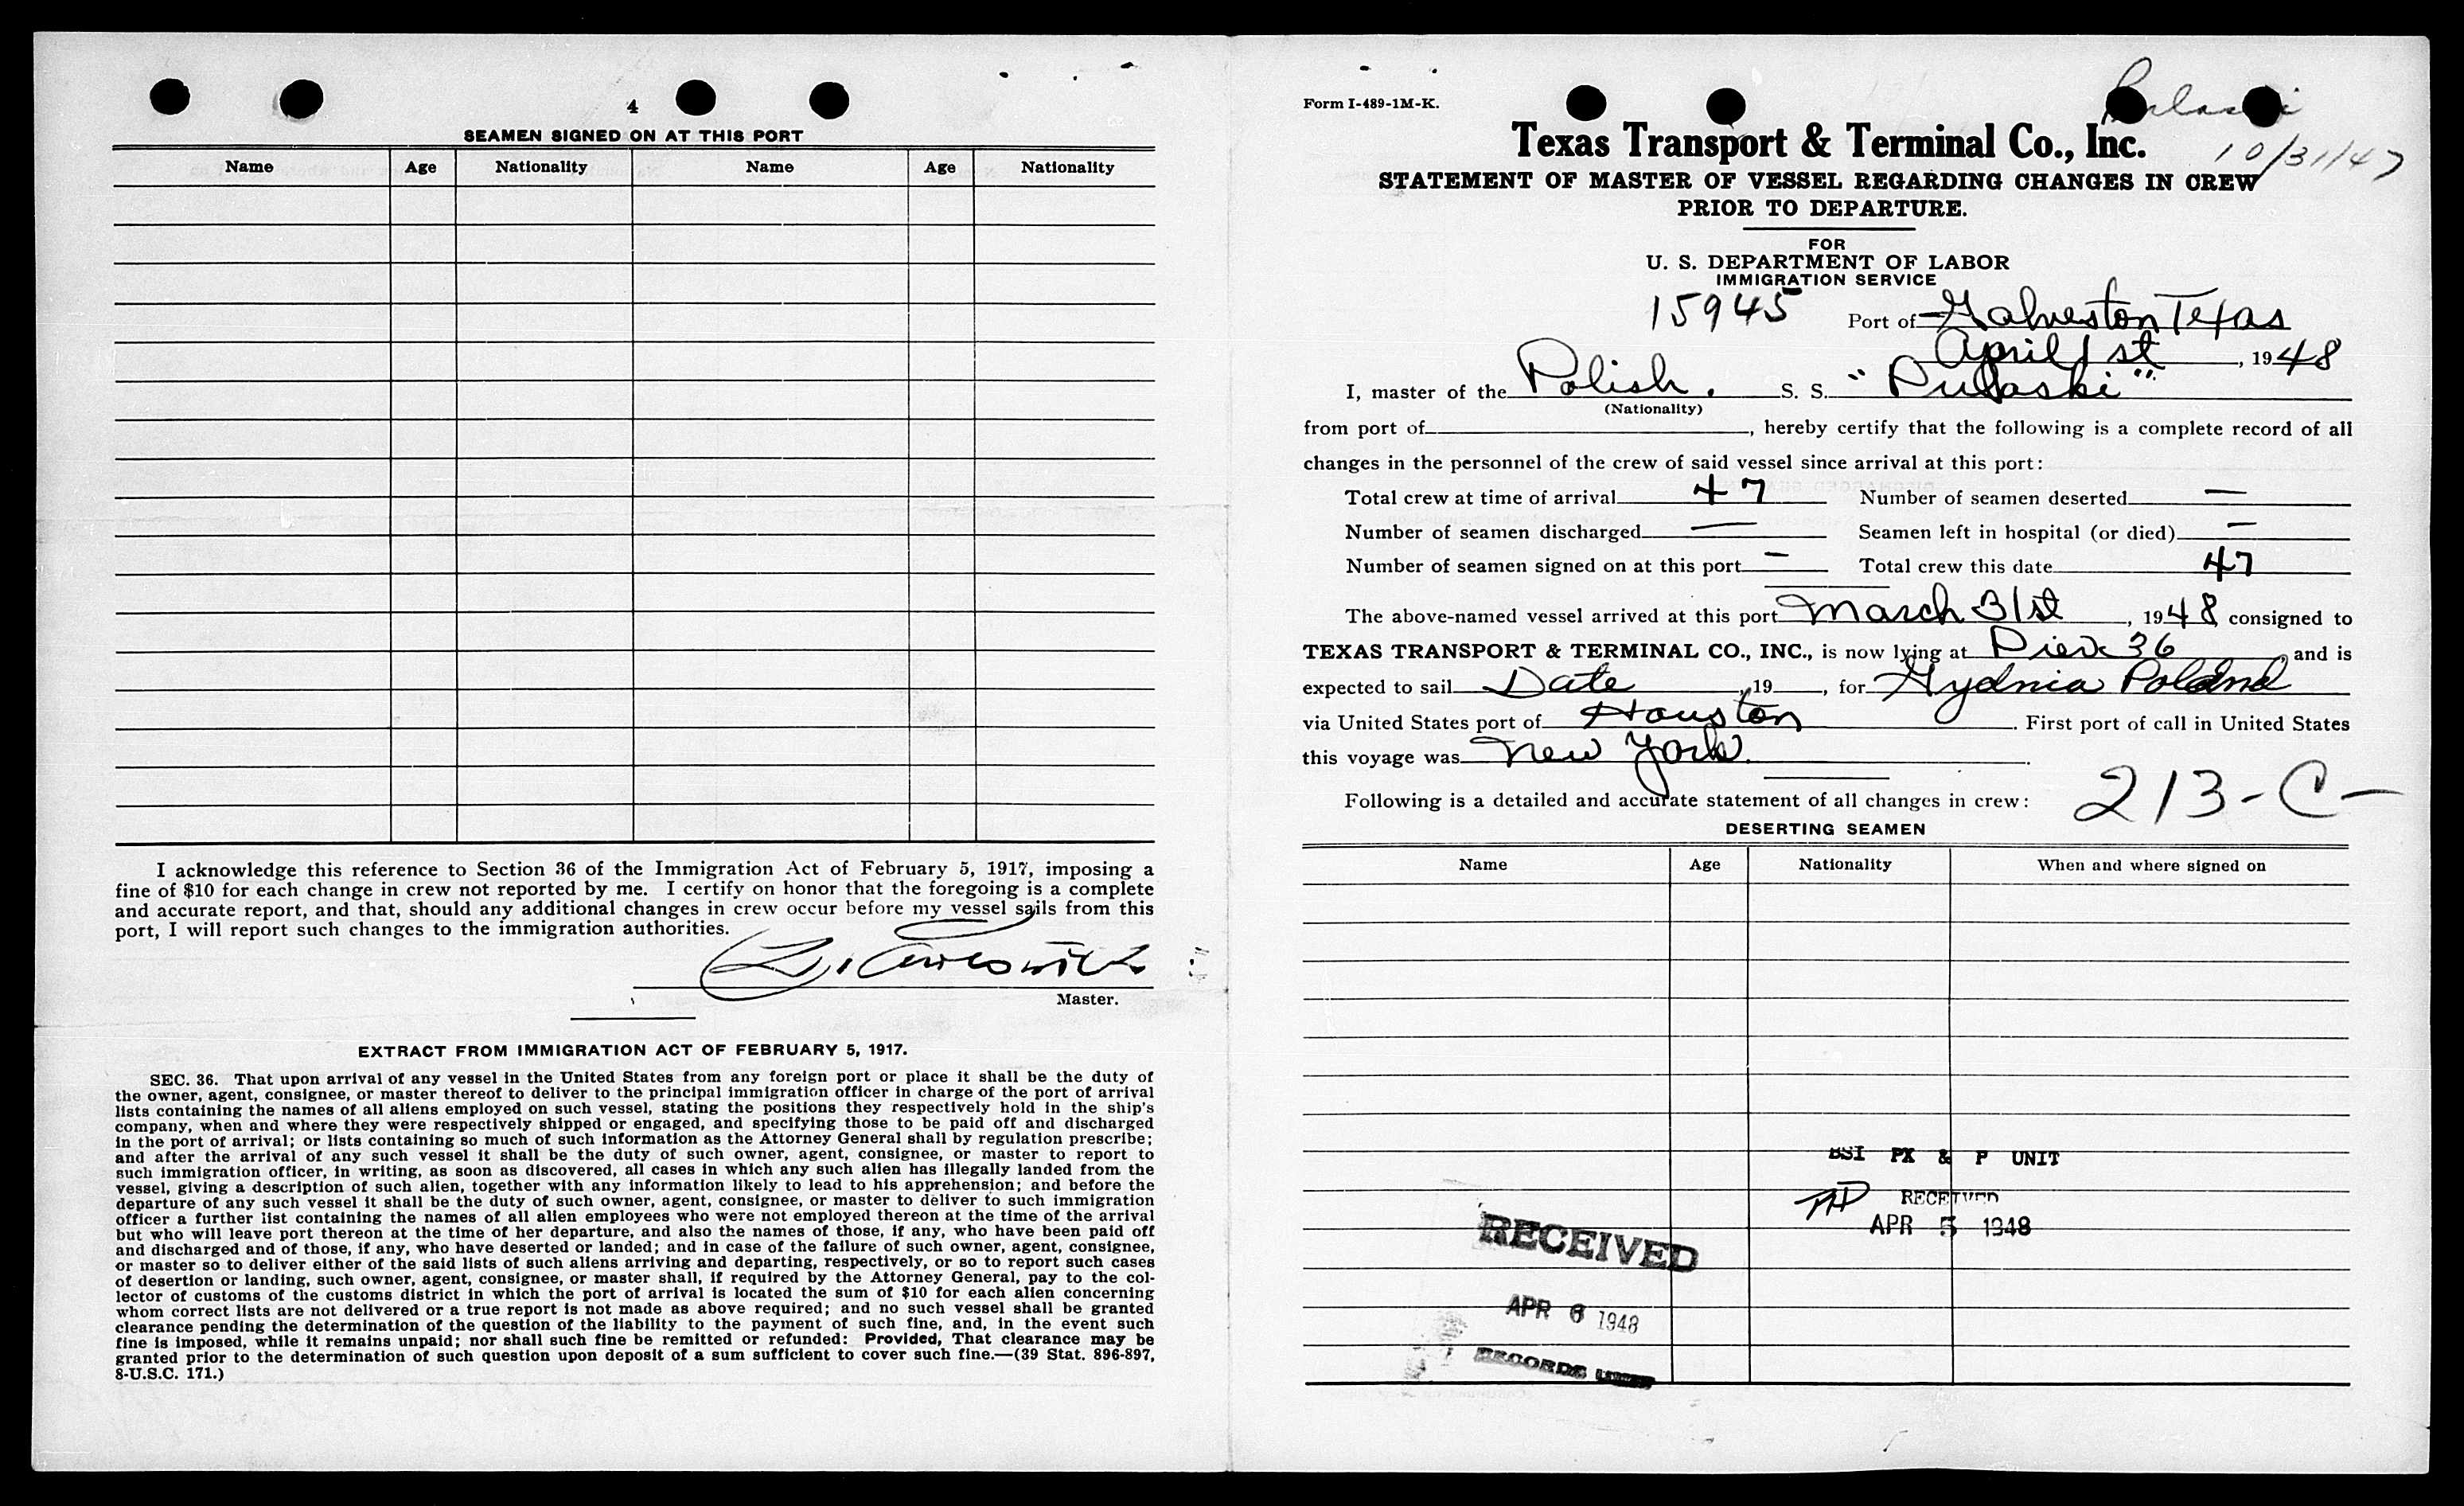 4
SEAMEN SIGNED ON AT THIS PORT
Name Age Nationality Name Age Nationality
I acknowledge this reference to Section 36 of the Immigration Act of February 5, 1917, imposing a
fine of $10 for each change in crew not reported by me. I certify on honor that the foregoing is a complete
and accurate report, and that, should any additional changes in crew occur before my vessel sails from this
port, I will report such changes to the immigration authorities.
Master.
EXTRACT FROM IMMIGRATION ACT OF FEBRUARY 5, 1917.
SEC. 36. That upon arrival of any vessel in the United States from any foreign port or place it shall be the duty of
the owner, agent, consignee, or master thereof to deliver to the principal immigration officer in charge of the port of arrival
lists containing the names of all aliens employed on such vessel, stating the positions they respectively hold in the ship's
company, when and where they were respectively shipped or engaged, and specifying those to be paid off and discharged
in the port of arrival; or lists containing so much of such information as the Attorney General shall by regulation prescribe;
and after the arrival of any such vessel it shall be the duty of such owner, agent, consignee, or master to report to
such immigration officer, in writing, as soon as discovered, all cases in which any such alien has illegally landed from the
vessel, giving a description of such alien, together with any information likely to lead to his apprehension; and before the
departure of any such vessel it shall be the duty of such owner, agent, consignee, or master to deliver to such immigration
officer a further list containing the names of all alien employees who were not employed thereon at the time of the arrival
but who will leave port thereon at the time of her departure, and also the names of those, if any, who have been paid off
and discharged and of those, if any, who have deserted or landed; and in case of the failure of such owner, agent, consignee,
or master so to deliver either of the said lists of such aliens arriving and departing, respectively, or so to report such cases
of desertion or landing, such owner, agent, consignee, or master shall, if required by the Attorney General, pay to the col-
lector of customs of the customs district in which the port of arrival is located the sum of $10 for each alien concerning
whom correct lists are not delivered or a true report is not made as above required; and no such vessel shall be granted
clearance pending the determination of the question of the liability to the payment of such fine, and, in the event such
fine is imposed, while it remains unpaid; nor shall such fine be remitted or refunded: Provided, That clearance may be
granted prior to the determination of such question upon deposit of a sum sufficient to cover such fine.—(39 Stat. 896-897,
8-U.S.C. 171.)
Form I-489-1M-K.
Texas Transport & Terminal Co., Inc.
10/31/47
STATEMENT OF MASTER OF VESSEL REGARDING CHANGES IN CREW
PRIOR TO DEPARTURE.
FOR
U. S. DEPARTMENT OF LABOR
IMMIGRATION SERVICE
15945 Port of Galveston Texas
April 1st, 1948
I, master of the Polish. S. S. "Pulaski"
(Nationality)
from port of , hereby certify that the following is a complete record of all
changes in the personnel of the crew of said vessel since arrival at this port:
Total crew at time of arrival 47 Number of seamen deserted —
Number of seamen discharged — Seamen left in hospital (or died) —
Number of seamen signed on at this port — Total crew this date 47
The above-named vessel arrived at this port March 31st, 1948 consigned to
TEXAS TRANSPORT & TERMINAL CO., INC., is now lying at Pier 36, and is
expected to sail Date, 19 , for Gydnia Poland
via United States port of Houston. First port of call in United States
this voyage was New York.
Following is a detailed and accurate statement of all changes in crew: 213-C-
DESERTING SEAMEN
Name Age Nationality When and where signed on
BSI PX & P UNIT
RECEIVED
APR 5 1948
RECEIVED
APR 6 1948
RECORDS